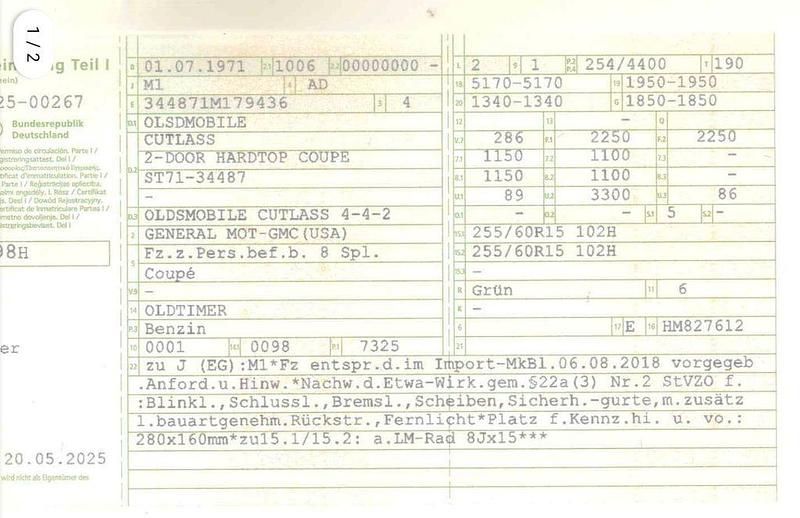 1 / 2
ng Teil I
25-00267
Bundesrepublik
Deutschland
98H
er
20.05.2025
wird nicht als Eigentümer des
B 01.07.1971 2.1 1006 2.2 00000000 -
J M1 4 AD
E 344871M179436 3 4
D.1 OLSDMOBILE
D.2 CUTLASS
2-DOOR HARDTOP COUPE
ST71-34487
-
D.3 OLDSMOBILE CUTLASS 4-4-2
2 GENERAL MOT-GMC(USA)
5 Fz.z.Pers.bef.b. 8 Spl.
Coupé
V.9 -
14 OLDTIMER
P.3 Benzin
10 0001 14.1 0098 P.1 7325
L 2 9 1 P.2 P.4 254/4400 T 190
18 5170-5170 19 1950-1950
20 1340-1340 G 1850-1850
12 13 - Q
V.7 286 F.1 2250 F.2 2250
7.1 1150 7.2 1100 7.3 -
8.1 1150 8.2 1100 8.3 -
U.1 89 U.2 3300 U.3 86
O.1 - O.2 - S.1 5 S.2 -
15.1 255/60R15 102H
15.2 255/60R15 102H
15.3 -
R Grün 11 6
K -
6 17 E 16 HM827612
21
22 zu J (EG):M1*Fz entspr.d.im Import-MkBl.06.08.2018 vorgegeb
.Anford.u.Hinw.*Nachw.d.Etwa-Wirk.gem.§22a(3) Nr.2 StVZO f.
:Blinkl.,Schlussl.,Bremsl.,Scheiben,Sicherh.-gurte,m.zusätz
l.bauartgenehm.Rückstr.,Fernlicht*Platz f.Kennz.hi. u. vo.:
280x160mm*zu15.1/15.2: a.LM-Rad 8Jx15***